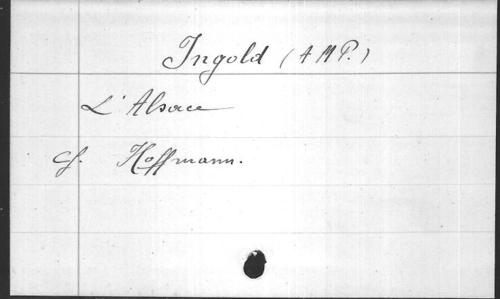 Ingold (A M P.)
L'Alsace
cf. Hoffmann.